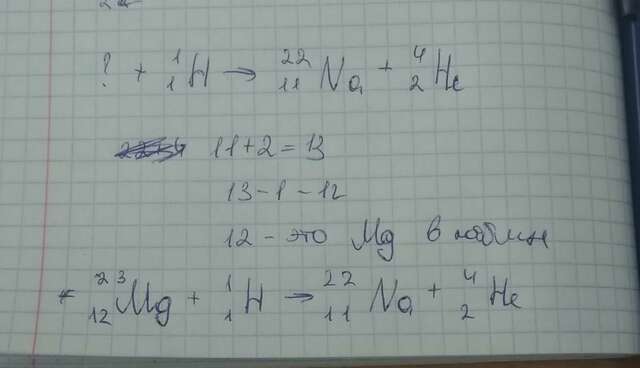 ? + ¹₁H → ²²₁₁Na + ⁴₂He
11+2=13
13-1-12
12 - это Mg в таблин
²³₁₂Mg + ¹₁H → ²²₁₁Na + ⁴₂He